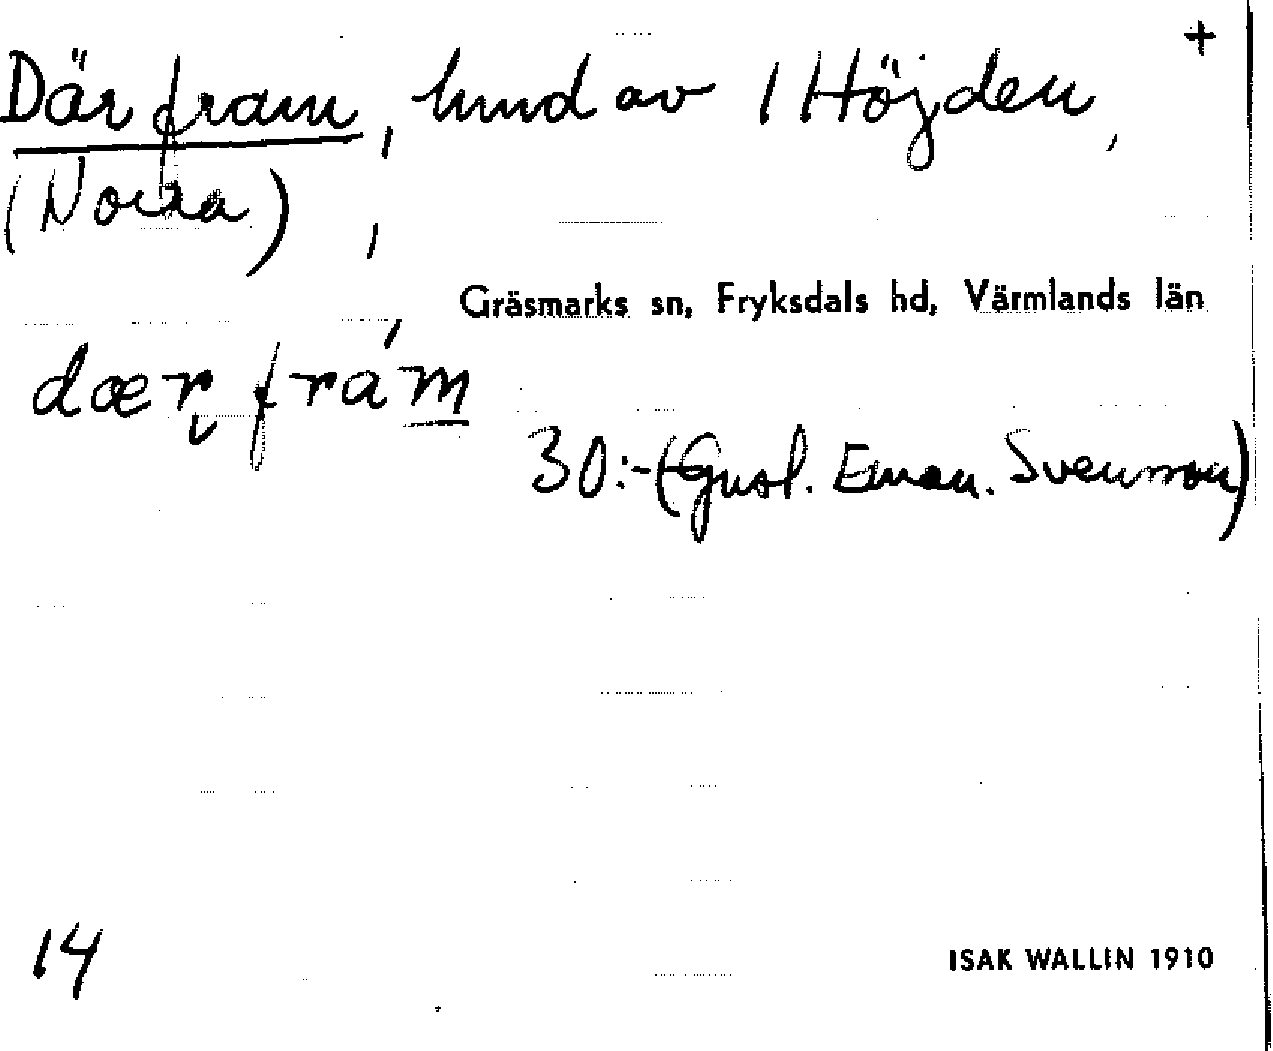 +
Där fram, hmd av 1 Höjden,
(Norra),
Gräsmarks sn, Fryksdals hd, Värmlands län
dær fram
30:-(Gust. Eman. Svensson)
14
ISAK WALLIN 1910